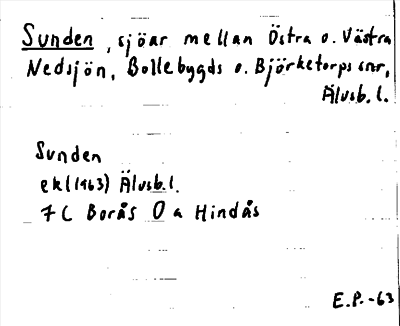 Sunden, sjöar mellan Östra o. Västra
Nedsjön, Bollebygds o. Björketorps snr,
Älvsb. l.
Sunden
ek (1963) Älvsb. l.
7 C Borås O a Hindås
E.P.-63